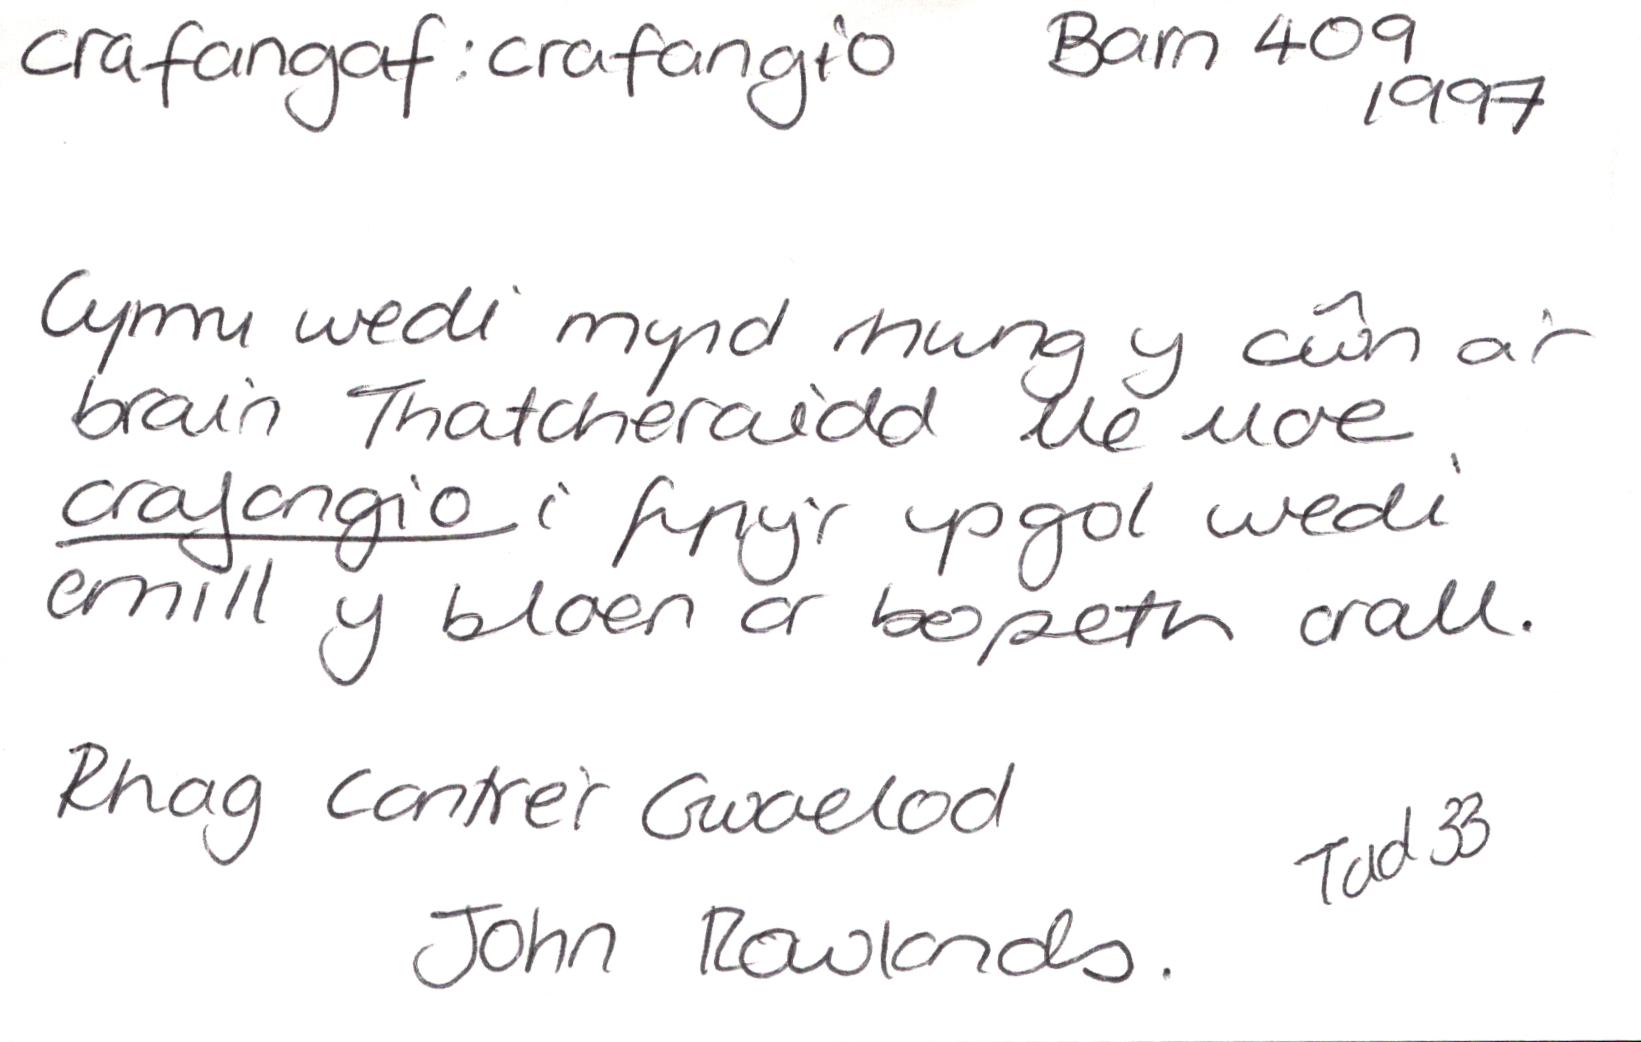 crafangaf: crafangio Barn 409
1997
Cymru wedi mynd rhwng y cŵn a'r
brain Thatcheraidd lle mae
crafangio i fyny'r ysgol wedi
ennill y blaen ar bopeth arall.
Rhag Cantre'r Gwaelod
Tad 33
John Rowlands.